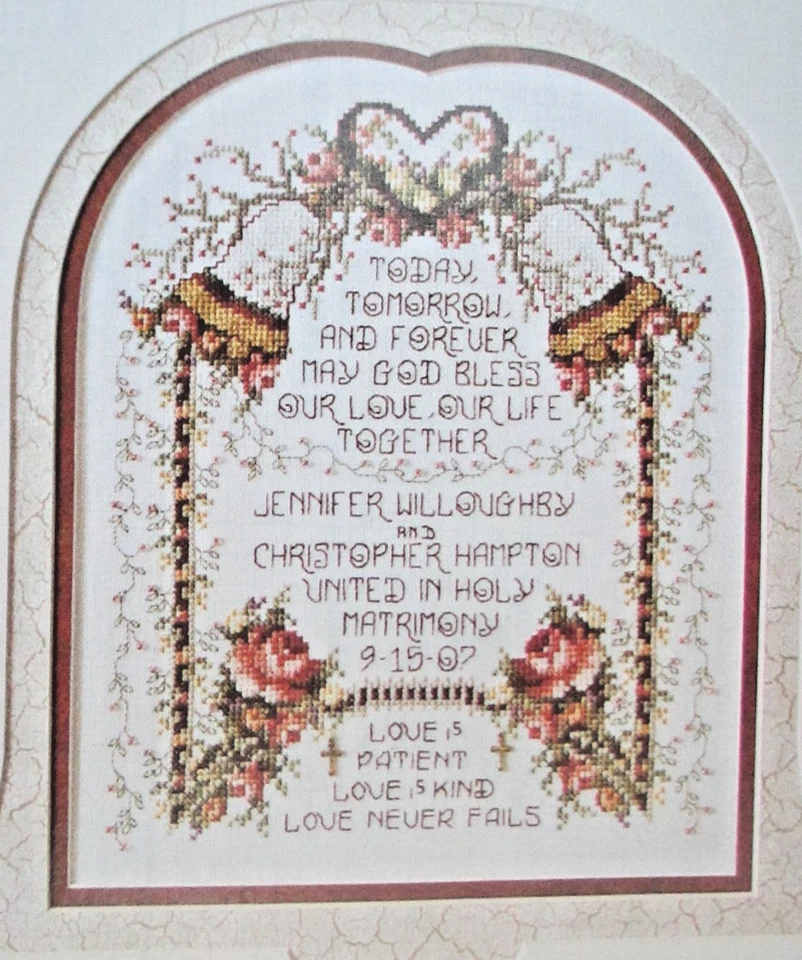 TODAY,
TOMORROW,
AND FOREVER
MAY GOD BLESS
OUR LOVE, OUR LIFE
TOGETHER
JENNIFER WILLOUGHBY
AND
CHRISTOPHER HAMPTON
UNITED IN HOLY
MATRIMONY
9-15-07
LOVE IS
PATIENT
LOVE IS KIND
LOVE NEVER FAILS